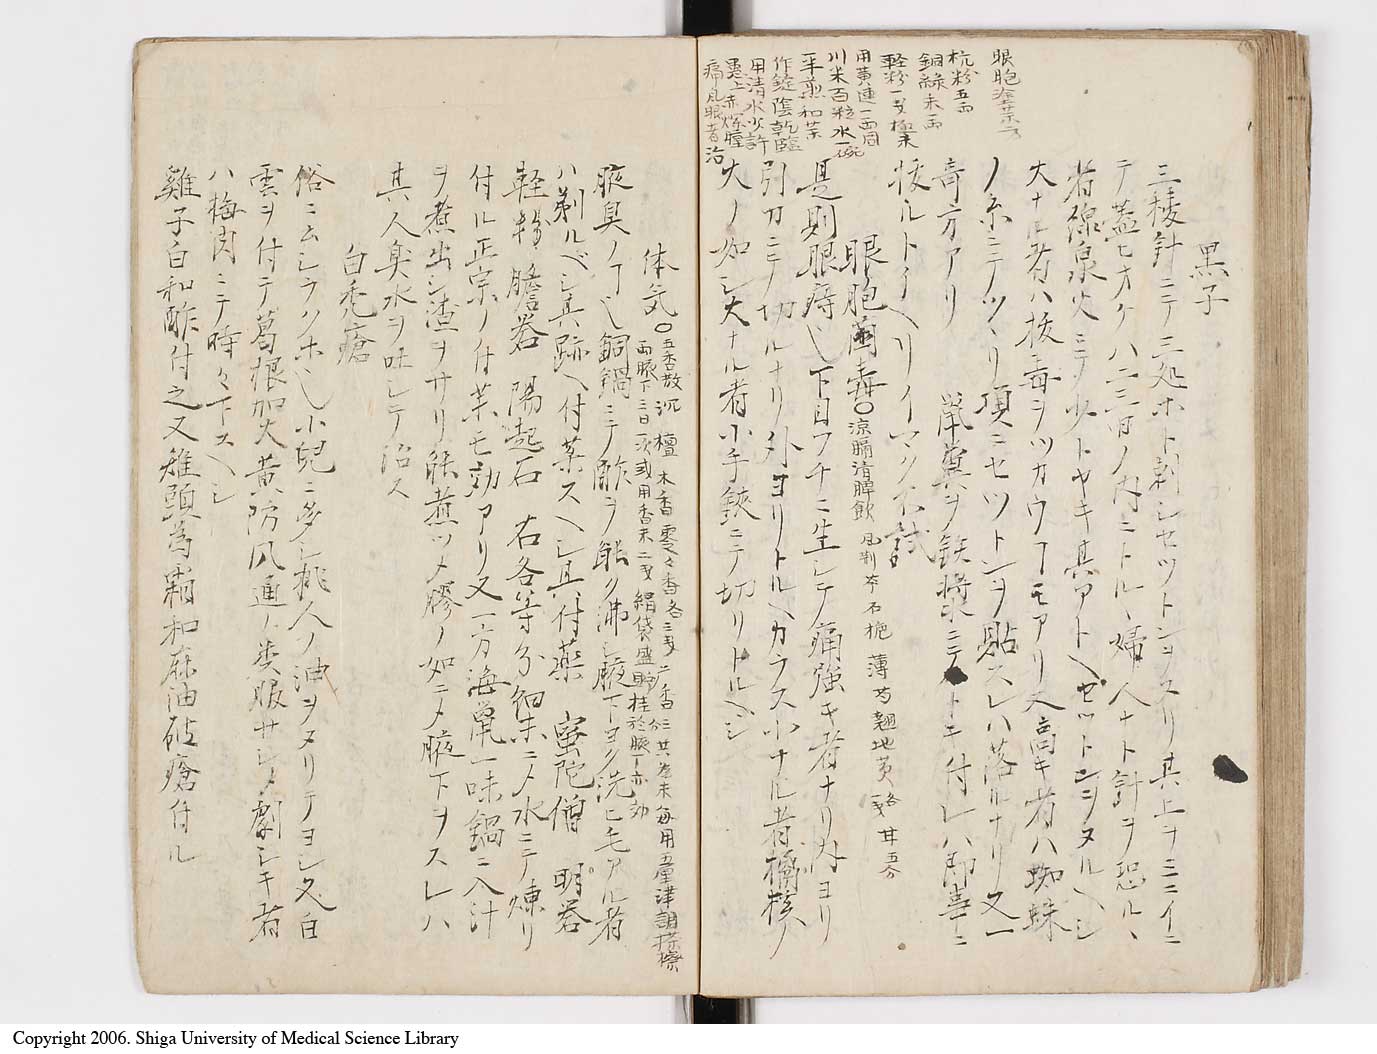 眼胞塗薬方
杭粉五両
銅緑末一両
軽粉一匁極末
用黄連一両同
川米百粒水一碗
半煎和薬
作錠陰乾臨
用清水少許
墨上赤爛腥
痛風眼者治
黒子
三稜針ニテ三処ホト刺シセツトンヲスリ其上ヲミニイニ
テ蓋セオケハ二三日ノ内ニトルヽ婦人ナト針ヲ恐ルヽ
者線泉火ニテ少トヤキ其アトヘセツトンヲヌルヘシ
大ナル者ハ抜毒ヲツカウヿモアリ又高キ者ハ蜘蛛
ノ糸ニテツヽリ頂ニセツトンヲ貼スレハ落ルナリ又一
奇方アリ 鼠糞ヲ鉄漿ニテ トキ付レハ即喜ニ
抜ルトイヘリイマタ不試
眼胞菌毒〇涼膈清脾飲 風荆芩石梔 薄芍翹地黄各一匁甘五分
是則眼痔也下目フチニ生シテ痛強キ者ナリ内ヨリ
引刀ニテ切ルナリ外ヨリトルヘカラス小ナル者橘核ノ
大ノ如シ大ナル者小手鋏ニテ切リトルヘシ
体気〇五香散 沉 檀 木香 零々香各三匁 广香三分 共為末毎用五量津調搽擦
両腋下三日一次或用香末二匁絹袋盛貯挂於腋下亦効
腋臭ノヿ也銅鍋ニテ酢ヲ能ク沸シ腋下ヨク洗ヒ毛アル者
ハ剃ルベシ其跡ヘ付薬スヘシ其付薬 蜜陀僧 明礬
軽粉 膽礬 陽起石 右各等分細末ニメ水ニテ煉リ
付ル正宗ノ付薬モ効アリ又一方海鼠一味鍋ニ入汁
ヲ煮出シ渣ヲサリ能煮ツメ膠ノ如ニメ腋下ヲスレハ
其人臭水ヲ吐シテ治ス
白禿瘡
俗ニムシラクホ也小児ニ多シ桃人ノ油ヲヌリテヨシ又白
雲ヲ付テ葛根加大黄防風通ノ类服サシメ劇シキ者
ハ梅肉ニテ時々下スヘシ
雞子白和酢付之又雄頭為霜和麻油破瘡付ル
Copyright 2006. Shiga University of Medical Science Library